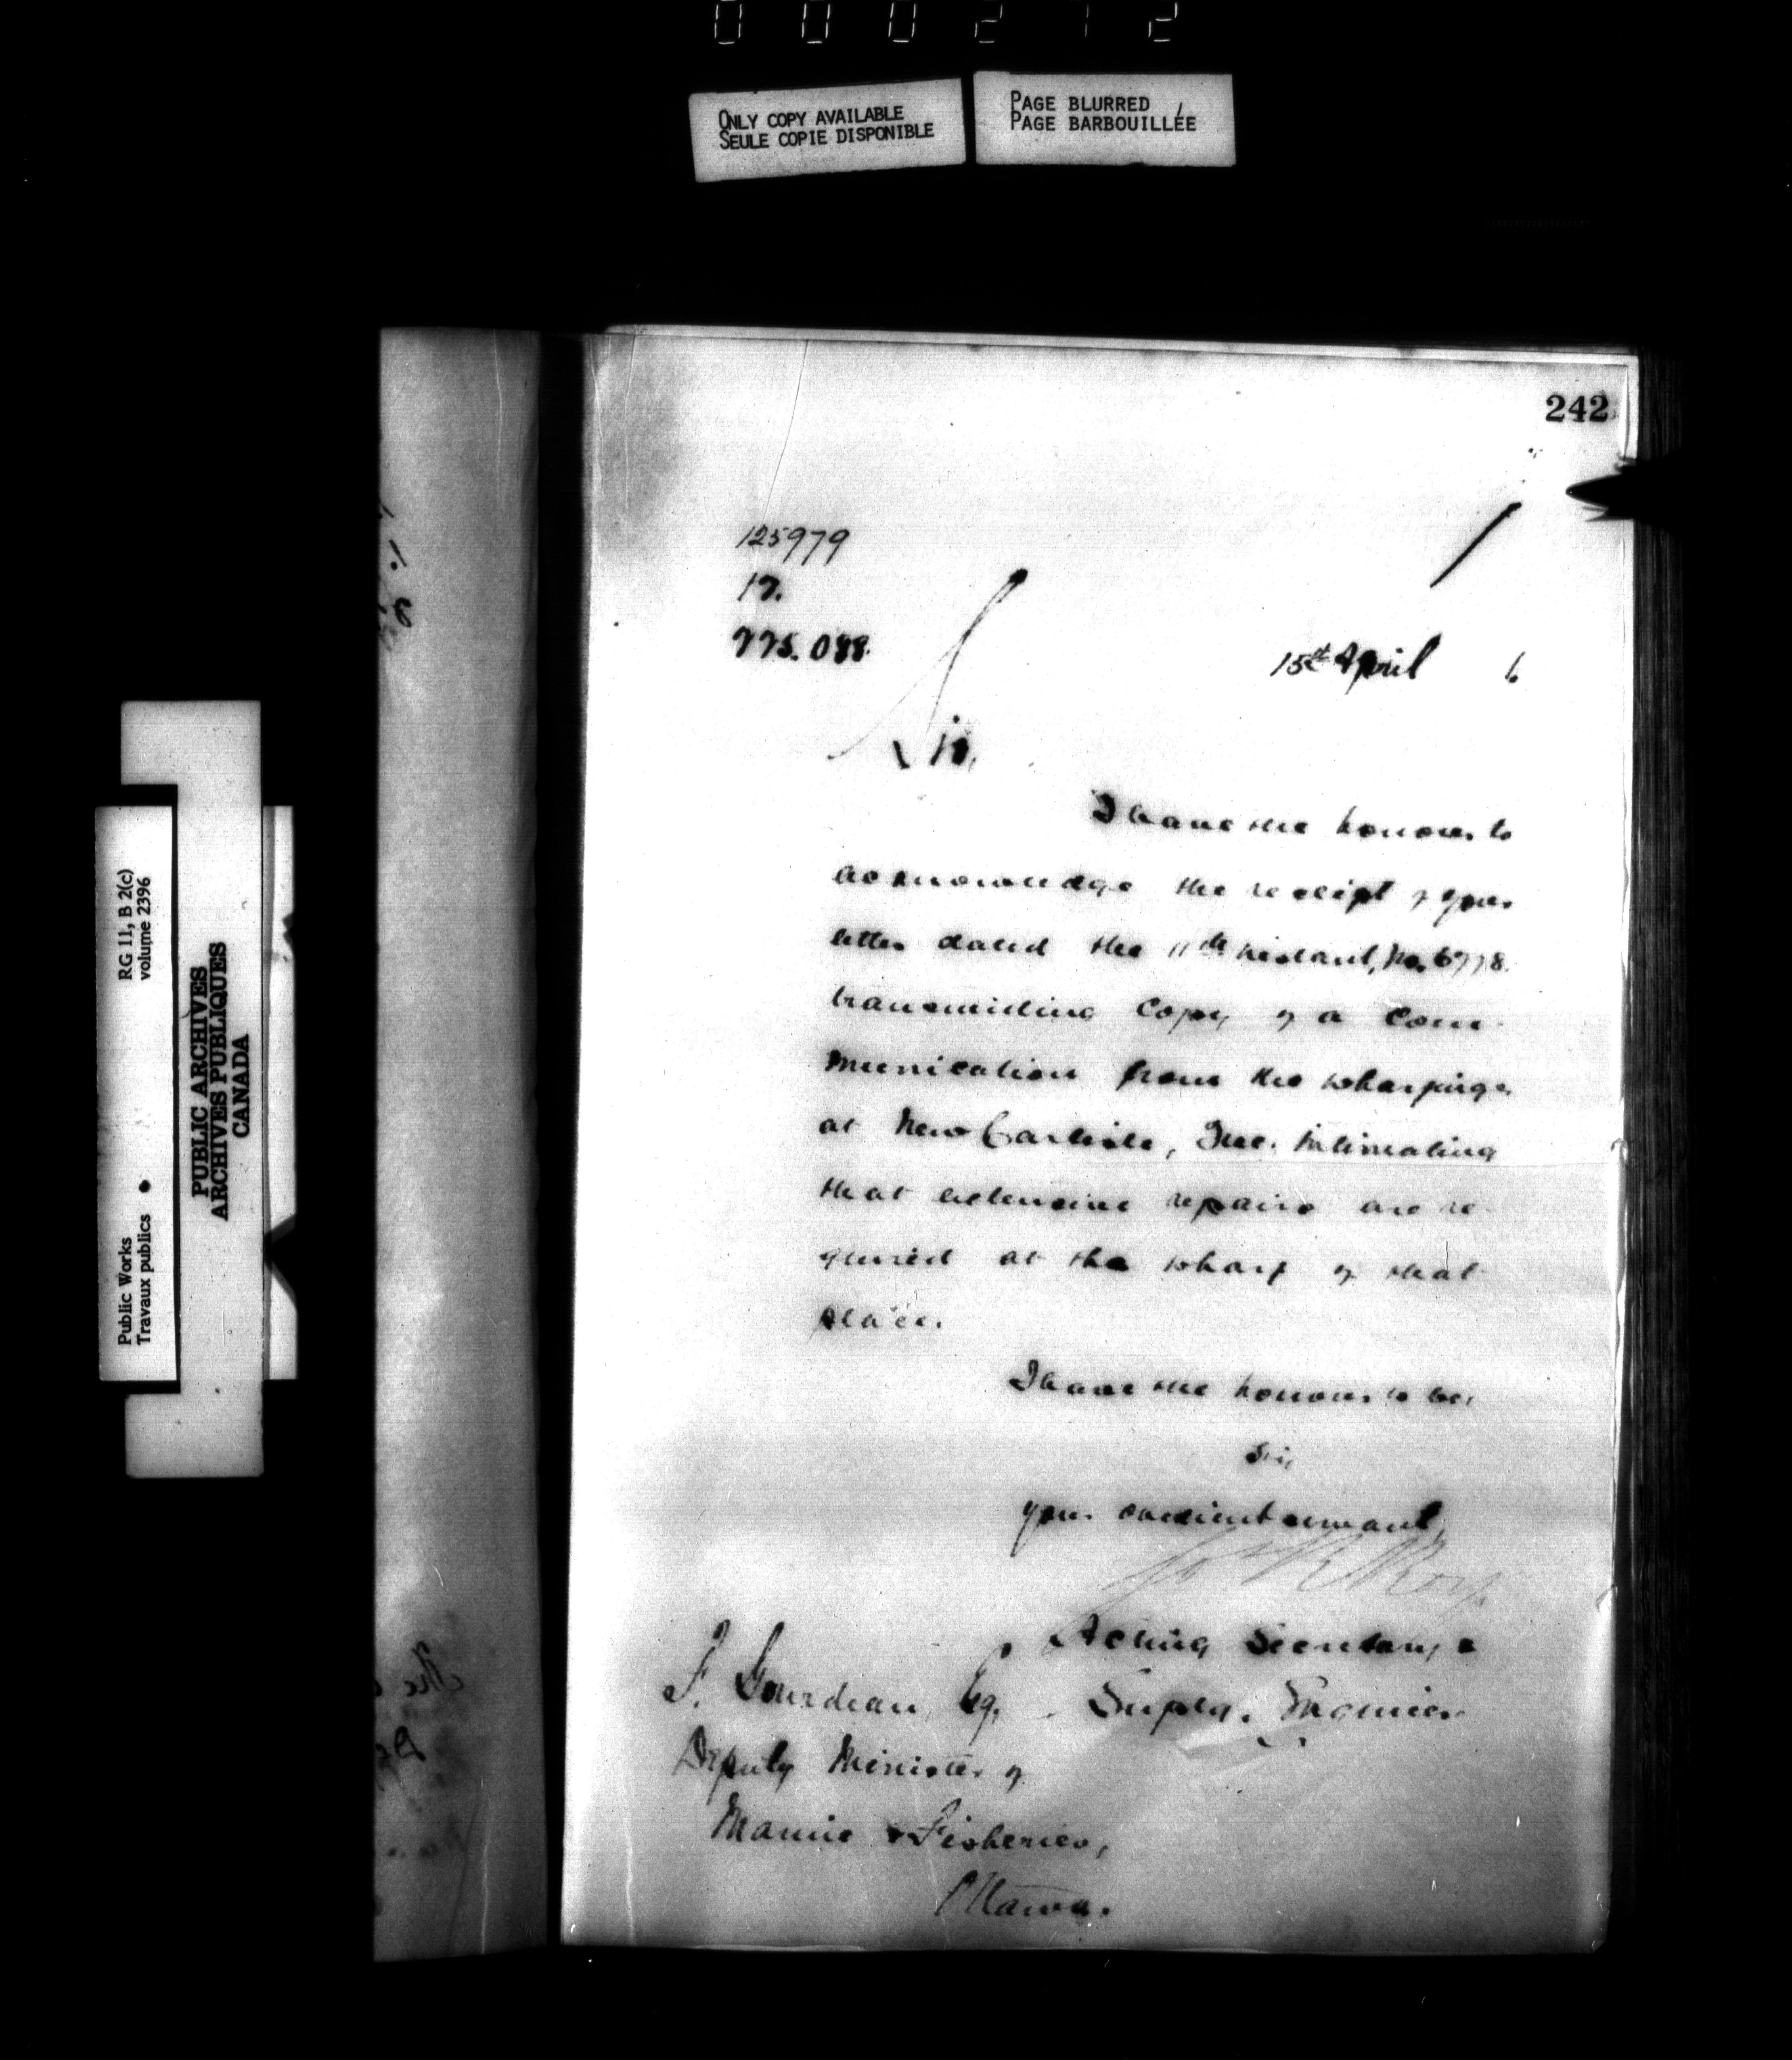 000272
ONLY COPY AVAILABLE
SEULE COPIE DISPONIBLE
PAGE BLURRED
PAGE BARBOUILLÉE
Public Works
Travaux publics
RG 11, B 2(c)
volume 2396
PUBLIC ARCHIVES
ARCHIVES PUBLIQUES
CANADA
242
125979
17.
775.088.
15th April 6.
Sir,
I have the honour to
acknowledge the receipt of your
letter dated the 11th instant, No. 6778.
transmitting copy of a com-
munication from the wharfinger
at New Carlisle, Que. intimating
that extensive repairs are re-
quired at the wharf of that
place.
I have the honour to be,
Sir,
your obedient servant,
Jos R Roy
Acting Secretary &
Superv. Engineer
F. Gourdeau, Esq.
Deputy Minister of
Marine & Fisheries,
Ottawa.